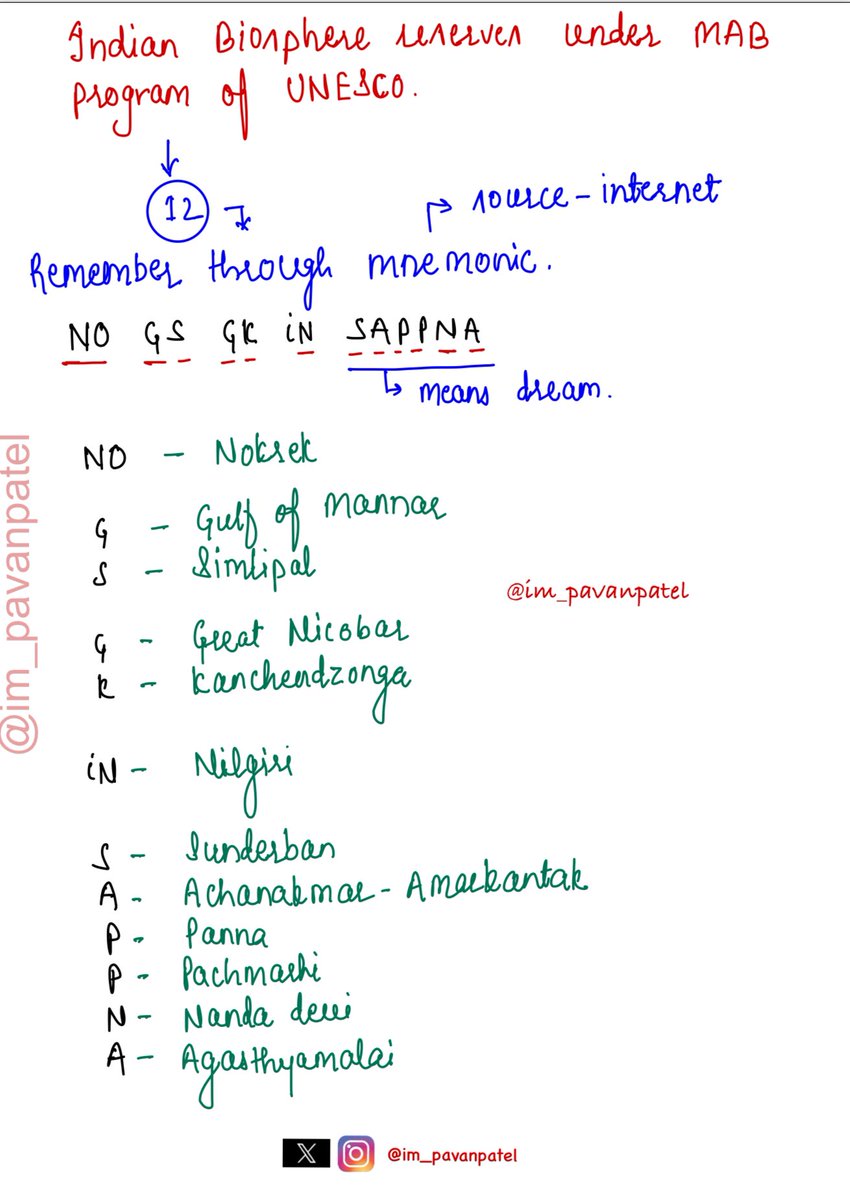 Indian Biosphere reserves under MAB
program of UNESCO.
12
source - internet
Remember through mnemonic.
NO GS GK iN SAPPNA
means dream.
NO - Nokrek
G - Gulf of Mannar
S - Simlipal
@im_pavanpatel
G - Great Nicobar
K - Kanchendzonga
@im_pavanpatel
iN - Nilgiri
S - Sunderban
A - Achanakmar - Amarkantak
P - Panna
P - Pachmarhi
N - Nanda devi
A - Agasthyamalai
X @im_pavanpatel